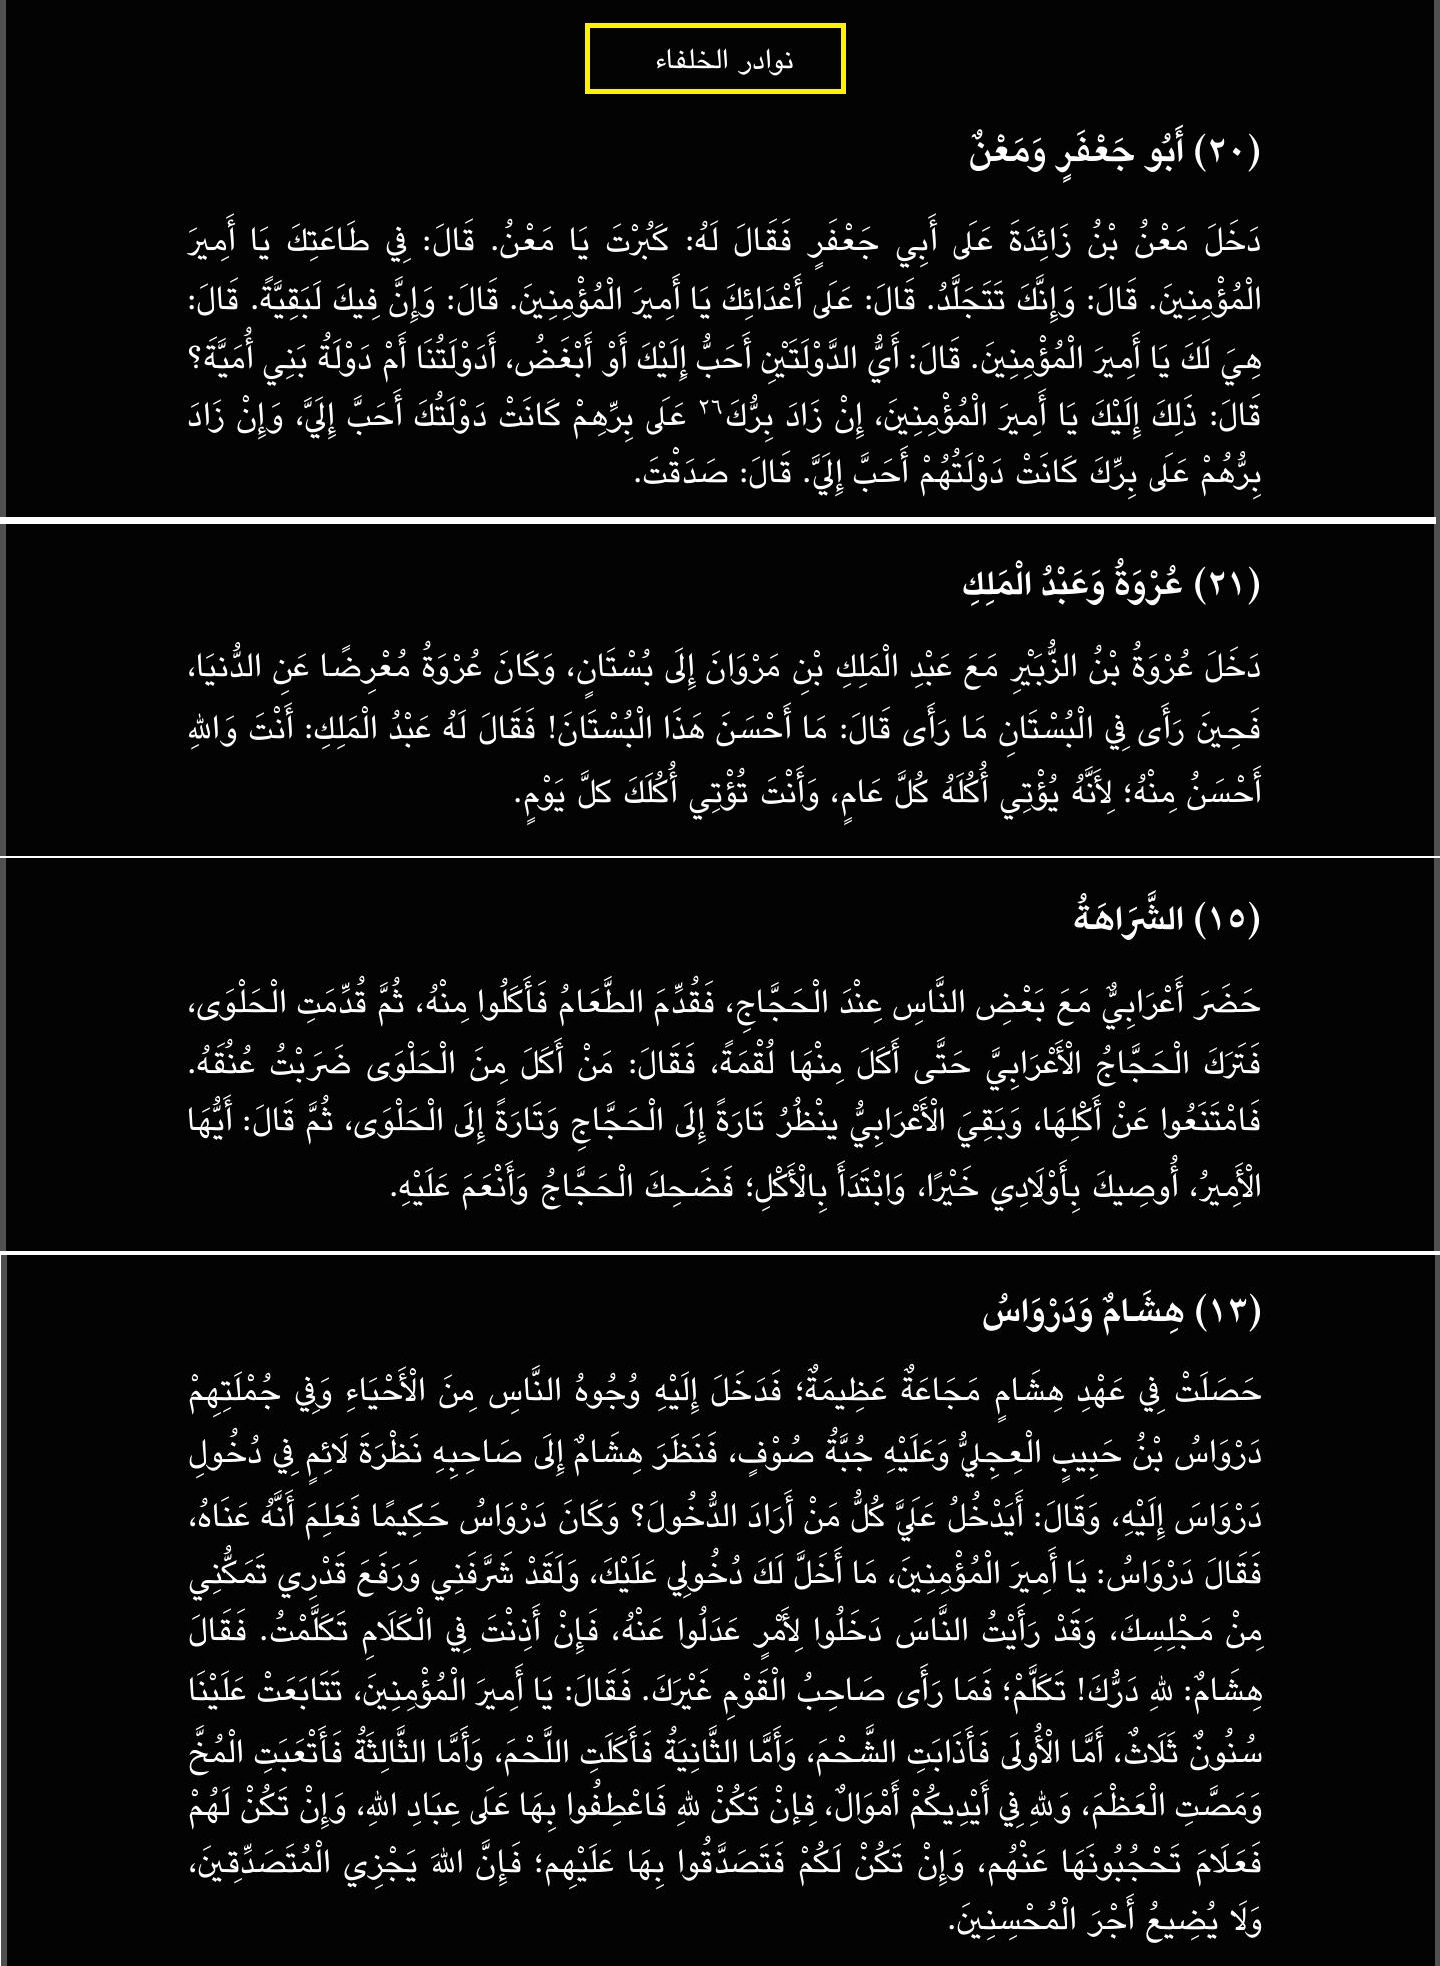 نوادر الخلفاء
(٢٠) أَبُو جَعْفَرٍ وَمَعْنٌ
دَخَلَ مَعْنُ بْنُ زَائِدَةَ عَلَى أَبِي جَعْفَرٍ فَقَالَ لَهُ: كَبُرْتَ يَا مَعْنُ. قَالَ: فِي طَاعَتِكَ يَا أَمِيرَ
الْمُؤْمِنِينَ. قَالَ: وَإِنَّكَ تَتَجَلَّدُ. قَالَ: عَلَى أَعْدَائِكَ يَا أَمِيرَ الْمُؤْمِنِينَ. قَالَ: وَإِنَّ فِيكَ لَبَقِيَّةً. قَالَ:
هِيَ لَكَ يَا أَمِيرَ الْمُؤْمِنِينَ. قَالَ: أَيُّ الدَّوْلَتَيْنِ أَحَبُّ إِلَيْكَ أَوْ أَبْغَضُ، أَدَوْلَتُنَا أَمْ دَوْلَةُ بَنِي أُمَيَّةَ؟
قَالَ: ذَلِكَ إِلَيْكَ يَا أَمِيرَ الْمُؤْمِنِينَ، إِنْ زَادَ بِرُّكَ٢٦ عَلَى بِرِّهِمْ كَانَتْ دَوْلَتُكَ أَحَبَّ إِلَيَّ، وَإِنْ زَادَ
بِرُّهُمْ عَلَى بِرِّكَ كَانَتْ دَوْلَتُهُمْ أَحَبَّ إِلَيَّ. قَالَ: صَدَقْتَ.
(٢١) عُرْوَةُ وَعَبْدُ الْمَلِكِ
دَخَلَ عُرْوَةُ بْنُ الزُّبَيْرِ مَعَ عَبْدِ الْمَلِكِ بْنِ مَرْوَانَ إِلَى بُسْتَانٍ، وَكَانَ عُرْوَةُ مُعْرِضًا عَنِ الدُّنيَا،
فَحِينَ رَأَى فِي الْبُسْتَانِ مَا رَأَى قَالَ: مَا أَحْسَنَ هَذَا الْبُسْتَانَ! فَقَالَ لَهُ عَبْدُ الْمَلِكِ: أَنْتَ وَاللهِ
أَحْسَنُ مِنْهُ؛ لِأَنَّهُ يُؤْتِي أُكُلَهُ كُلَّ عَامٍ، وَأَنْتَ تُؤْتِي أُكُلَكَ كلَّ يَوْمٍ.
(١٥) الشَّرَاهَةُ
حَضَرَ أَعْرَابِيٌّ مَعَ بَعْضِ النَّاسِ عِنْدَ الْحَجَّاجِ، فَقُدِّمَ الطَّعَامُ فَأَكَلُوا مِنْهُ، ثُمَّ قُدِّمَتِ الْحَلْوَى،
فَتَرَكَ الْحَجَّاجُ الْأَعْرَابِيَّ حَتَّى أَكَلَ مِنْهَا لُقْمَةً، فَقَالَ: مَنْ أَكَلَ مِنَ الْحَلْوَى ضَرَبْتُ عُنُقَهُ.
فَامْتَنَعُوا عَنْ أَكْلِهَا، وَبَقِيَ الْأَعْرَابِيُّ ينْظُرُ تَارَةً إِلَى الْحَجَّاجِ وَتَارَةً إِلَى الْحَلْوَى، ثُمَّ قَالَ: أَيُّهَا
الْأَمِيرُ، أُوصِيكَ بِأَوْلَادِي خَيْرًا، وَابْتَدَأَ بِالْأَكْلِ؛ فَضَحِكَ الْحَجَّاجُ وَأَنْعَمَ عَلَيْهِ.
(١٣) هِشَامٌ وَدَرْوَاسُ
حَصَلَتْ فِي عَهْدِ هِشَامٍ مَجَاعَةٌ عَظِيمَةٌ؛ فَدَخَلَ إِلَيْهِ وُجُوهُ النَّاسِ مِنَ الْأَحْيَاءِ وَفِي جُمْلَتِهِمْ
دَرْوَاسُ بْنُ حَبِيبٍ الْعِجِليُّ وَعَلَيْهِ جُبَّةُ صُوْفٍ، فَنَظَرَ هِشَامٌ إِلَى صَاحِبِهِ نَظْرَةَ لَائِمٍ فِي دُخُولِ
دَرْوَاسَ إِلَيْهِ، وَقَالَ: أَيَدْخُلُ عَلَيَّ كُلُّ مَنْ أَرَادَ الدُّخُولَ؟ وَكَانَ دَرْوَاسُ حَكِيمًا فَعَلِمَ أَنَّهُ عَنَاهُ،
فَقَالَ دَرْوَاسُ: يَا أَمِيرَ الْمُؤْمِنِينَ، مَا أَخَلَّ لَكَ دُخُولِي عَلَيْكَ، وَلَقَدْ شَرَّفَنِي وَرَفَعَ قَدْرِي تَمَكُّنِي
مِنْ مَجْلِسِكَ، وَقَدْ رَأَيْتُ النَّاسَ دَخَلُوا لِأَمْرٍ عَدَلُوا عَنْهُ، فَإِنْ أَذِنْتَ فِي الْكَلَامِ تَكَلَّمْتُ. فَقَالَ
هِشَامٌ: للهِ دَرُّكَ! تَكَلَّمْ؛ فَمَا رَأَى صَاحِبُ الْقَوْمِ غَيْرَكَ. فَقَالَ: يَا أَمِيرَ الْمُؤْمِنِينَ، تَتَابَعَتْ عَلَيْنَا
سُنُونٌ ثَلَاثٌ، أَمَّا الْأُولَى فَأَذَابَتِ الشَّحْمَ، وَأَمَّا الثَّانِيَةُ فَأَكَلَتِ اللَّحْمَ، وَأَمَّا الثَّالِثَةُ فَأَتْعَبَتِ الْمُخَّ
وَمَصَّتِ الْعَظْمَ، وَللهِ فِي أَيْدِيكُمْ أَمْوَالٌ، فِإنْ تَكُنْ للهِ فَاعْطِفُوا بِهَا عَلَى عِبَادِ اللهِ، وَإِنْ تَكُنْ لَهُمْ
فَعَلَامَ تَحْجُبُونَهَا عَنْهُم، وَإِنْ تَكُنْ لَكُمْ فَتَصَدَّقُوا بِهَا عَلَيْهِم؛ فَإِنَّ اللهَ يَجْزِي الْمُتَصَدِّقِينَ،
وَلَا يُضِيعُ أَجْرَ الْمُحْسِنِينَ.